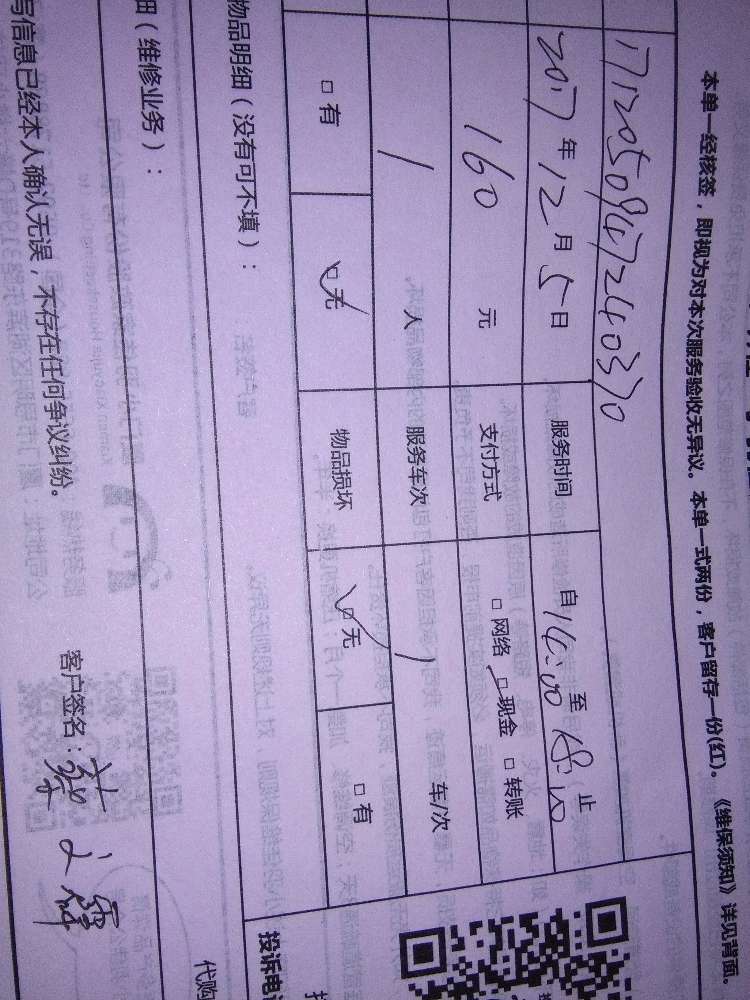 本单一经核签，即视为对本次服务验收无异议。本单一式两份，客户留存一份(红)。《维保须知》详见背面。
1712050947240370
2017年12月5日 服务时间 自14:00至18:10止
160元 支付方式 □网络 ☑现金 □转账
1人 服务车次 1车/次
□有 ☑无 物品损坏 ☑无 □有
物品明细（没有可不填）： 投诉电
代购
细（维修业务）：
写信息已经本人确认无误，不存在任何争议纠纷。 客户签名：